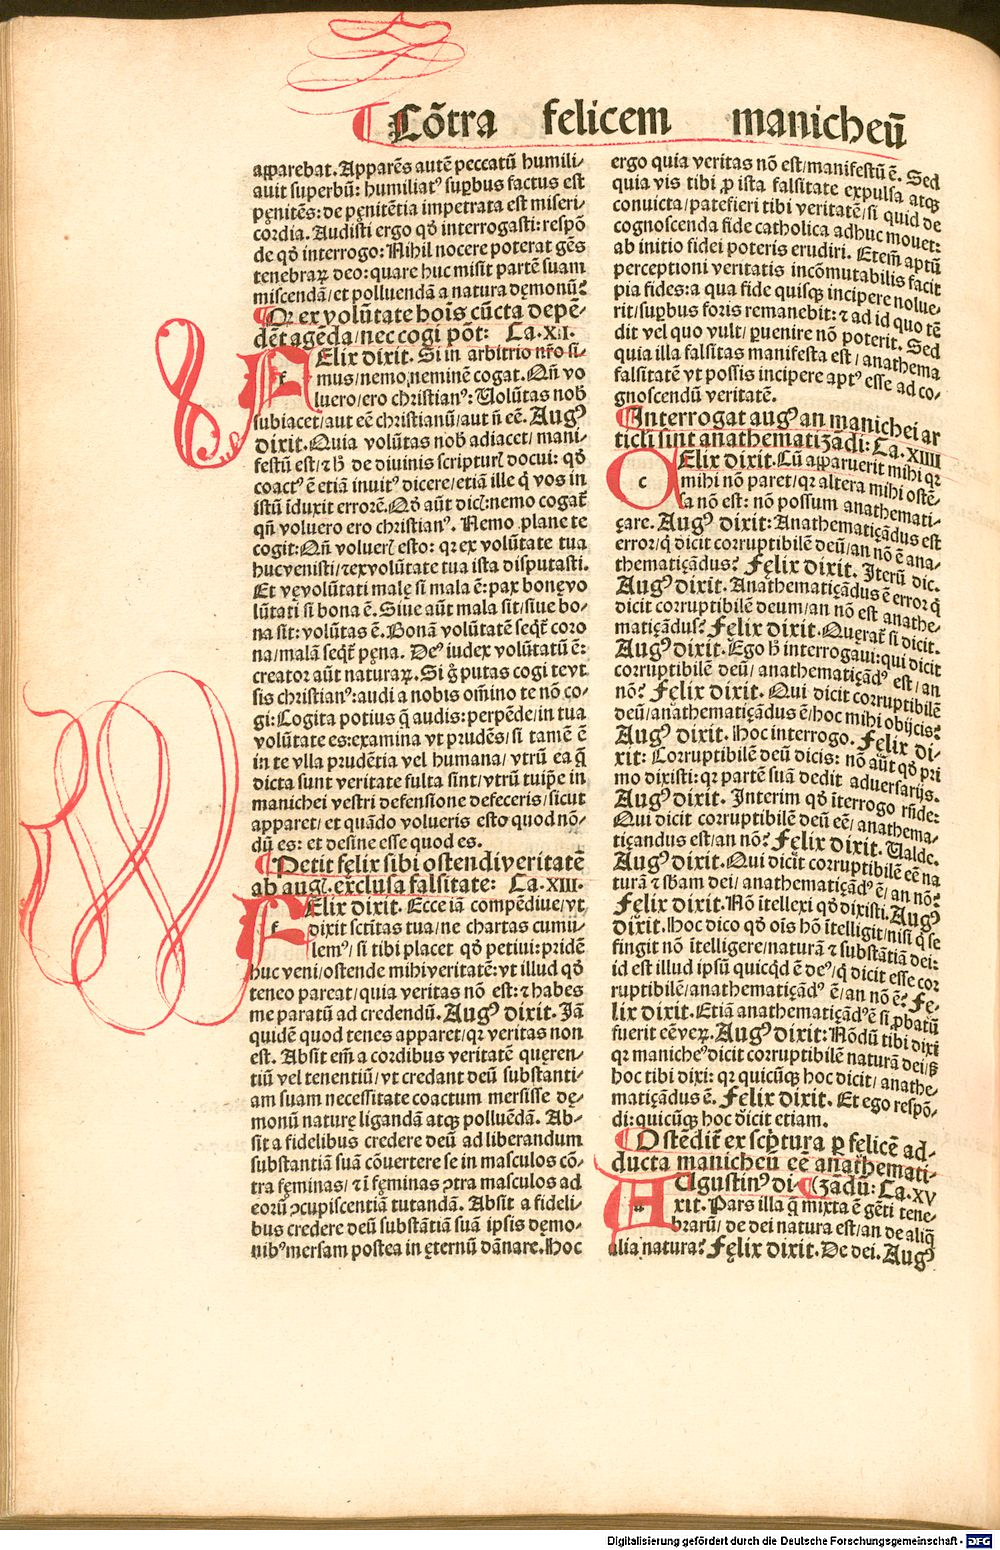 Cõtra felicem manicheũ
apparebat. Apparẽs autẽ peccatũ humili⸗
auit superbũ: humiliatꝰ supbus factus est
pęnitẽs: de pęnitẽtia impetrata est miseri⸗
cordia. Audisti ergo qd̛ interrogasti: respõ
de qd̛ interrogo: Nihil nocere poterat gẽs
tenebraꝝ deo: quare huc misit partẽ suam
miscendã/et polluendã a natura dęmonũ?
Qr ex volũtate hoĩs cũcta depẽ⸗
dẽt agẽda/nec cogi põt: Ca.XII.
FElix dixit. Si in arbitrio nr̃o si⸗
mus/nemo neminẽ cogat. Qñ vo
luero/ero christianꝰ: Uolũtas nob̃
subiacet/aut eẽ christianũ/aut ñ eẽ. Augꝰ
dixit. Quia volũtas nob̃ adiacet/mani⸗
festũ est/⁊ h̃ de diuinis scriptur̃ docui: qd̛
coactꝰ ẽ etiã inuitꝰ dicere/etiã ille q̃ vos in
istũ ĩduxit errorẽ. Qd̛ aũt dicĩ: nemo cogat̃
qñ voluero ero christianꝰ. Nemo plane te
cogit: Qñ voluer̃ esto: qr ex volũtate tua
huc venisti/⁊ ex volũtate tua ista disputasti.
Et vę volũtati malę si mala ẽ: pax bonę vo
lũtati si bona ẽ. Siue aũt mala sit/siue bo⸗
na sit: volũtas ẽ. Bonã volũtatẽ seqt̃ coro
na/malã seqt̃ pęna. Deꝰ iudex volũtatũ ẽ:
creator aũt naturaꝝ. Si g̃ putas cogi te vt
sis christianꝰ: audi a nobis om̃ino te nõ co⸗
gi: Cogita potius q̃ audis: perpẽde/in tua
volũtate es: examina vt prudẽs/si tamẽ ẽ
in te vlla prudẽtia vel humana/vtrũ ea q̃
dicta sunt veritate fulta sint/vtrũ tuipe in
manichei vestri defensione defeceris/sicut
apparet/et quãdo volueris esto quod nõ⸗
dũ es: et desine esse quod es.
Petit fęlix sibi ostendi veritatẽ
ab augł. exclusa falsitate: Ca.XIII.
FElix dixit. Ecce iã compẽdiue/vt
dixit sctitas tua/ne chartas cumu⸗
lemꝰ/si tibi placet qd̛ petiui: pridẽ
huc veni/ostende mihi veritatẽ: vt illud qd̛
teneo pareat/quia veritas nõ est: ⁊ habes
me paratũ ad credendũ. Augꝰ dixit. Iã
quidẽ quod tenes apparet/qr veritas non
est. Absit em̃ a cordibus veritatẽ quęren⸗
tiũ vel tenentiũ/vt credant deũ substanti⸗
am suam necessitate coactum mersisse dę⸗
monũ nature ligandã atqꝫ polluẽdã. Ab⸗
sit a fidelibus credere deũ ad liberandum
substantiã suã cõuertere se in masculos cõ⸗
tra fęminas/⁊ ĩ fęminas ꝯtra masculos ad
eorũ ꝯcupiscentiã tutandã. Absit a fideli⸗
bus credere deũ substãtiã suã ipsis dęmo⸗
nibꝰ mersam postea in ęternũ dãnare. Hoc
ergo quia veritas nõ est/manifestũ ẽ. Sed
quia vis tibi ꝓ ista falsitate expulsa atqꝫ
conuicta/patefieri tibi veritatẽ/si quid de
cognoscenda fide catholica adhuc mouet:
ab initio fidei poteris erudiri. Etem̃ aptũ
perceptioni veritatis incõmutabilis facit
pia fides: a qua fide quisqꝫ incipere nolue⸗
rit/supbus foris remanebit: ⁊ ad id quo tẽ
dit vel quo vult/puenire nõ poterit. Sed
quia illa falsitas manifesta est/anathema
falsitatẽ vt possis incipere aptꝰ esse ad co⸗
gnoscendũ veritatẽ.
Interrogat augꝰ an manichei ar
ticli sint anathematizãdi: Ca.XIIII
FElix dixit. Cũ apparuerit mihi qr
mihi nõ paret/qr altera mihi ostẽ⸗
sa nõ est: nõ possum anathemati⸗
çare. Augꝰ dixit: Anathematiçãdus est
error/q̃ dicit corruptibilẽ deũ/an nõ ẽ ana⸗
thematiçãdus? Fęlix dixit. Iterũ dic.
Augꝰ dixit. Anathematiçãdus ẽ error q̃
dicit corruptibilẽ deum/an nõ est anathe⸗
matiçãdus? Fęlix dixit. Quęrat̃ si dicit.
Augꝰ dixit. Ego h̃ interrogaui: qui dicit
corruptibilẽ deũ/anathematiçãdꝰ est/an
nõ? Fęlix dixit. Qui dicit corruptibilẽ
deũ/anathematiçãdus ẽ/hoc mihi obijcis?
Augꝰ dixit. Hoc interrogo. Fęlix di⸗
xit: Corruptibilẽ deũ dicis: nõ aũt qd̛ pri
mo dixisti: qr partẽ suã dedit aduersarijs.
Augꝰ dixit. Interim qd̛ ĩterrogo rñde:
Qui dicit corruptibilẽ deũ eẽ/anathema⸗
tiçandus est/an nõ? Fęlix dixit. Ualde.
Augꝰ dixit. Qui dicit corruptibilẽ eẽ na
turã ⁊ sb̃am dei/anathematiçãdꝰ ẽ/an nõ?
Fęlix dixit. Nõ ĩtellexi qd̛ dixisti. Augꝰ
dixit. Hoc dico qd̛ oĩs hõ ĩtelligit/nisi q̃ se
fingit nõ ĩtelligere/naturã ⁊ substãtiã dei:
id est illud ipsũ quicqd̃ ẽ deꝰ/q̃ dicit esse cor
ruptibilẽ/anathematiçãdꝰ ẽ/an nõ ẽ? Fę⸗
lix dixit. Etiã anathematiçãdꝰ ẽ si ꝓbatũ
fuerit eẽ veꝝ. Augꝰ dixit: Nõdũ tibi dixi
qr manicheꝰ dicit corruptibilẽ naturã dei/ß
hoc tibi dixi: qr quicũqꝫ hoc dicit/anathe⸗
matiçãdus ẽ. Fęlix dixit. Et ego respõ⸗
di: quicũqꝫ hoc dicit etiam.
Ostẽdit̃ ex scp̃tura ꝑ fęlicẽ ad⸗
ducta manicheũ eẽ anathemati⸗
zãdũ: Ca.XV
AUgustinꝰ di⸗
xit. Pars illa q̃ mixta ẽ gẽti tene⸗
brarũ/de dei natura est/an de aliq̃
alia natura? Fęlix dixit. De dei. Augꝰ
Digitalisierung gefördert durch die Deutsche Forschungsgemeinschaft - DFG